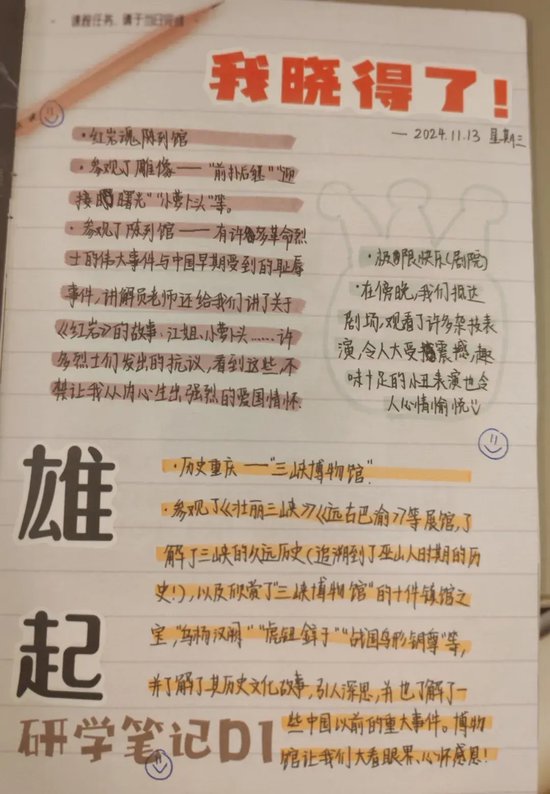 课程任务，请于当日完成
我晓得了！
— 2024.11.13 星期三
·红岩魂陈列馆
·参观了雕像——“前扑后继”“迎
接曙光”“小萝卜头”等。
·参观了陈列馆——有许多革命烈
士的伟大事件与中国早期受到的耻辱
事件，讲解员老师还给我们讲了关于
《红岩》的故事、江姐、小萝卜头……许
多烈士们发出的抗议，看到这些，不
禁让我从内心生出强烈的爱国情怀.
·极限快乐(剧院)
·在傍晚，我们抵达
剧场，观看了许多杂技表
演，令人大受震撼，趣
味十足的小丑表演也令
人心情愉悦
雄起
·历史重庆——“三峡博物馆”
·参观了《壮丽三峡》《远古巴渝》等展馆，了
解了三峡的久远历史(追溯到了巫山人时期的历
史！)，以及欣赏了“三峡博物馆”的十件镇馆之
宝，“乌杨汉阙”“虎钮錞于”“战国鸟形铜尊”等，
并了解了其历史文化故事，引人深思，并也了解了一
些中国以前的重大事件。博物
馆让我们大看眼界、心怀感恩！
研学笔记D1